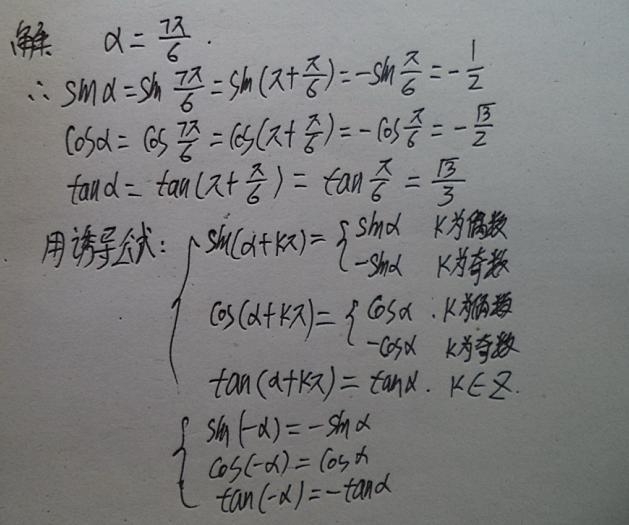 解 α = 7π/6 .
∴ sinα = sin 7π/6 = sin(π + π/6) = -sin π/6 = -1/2
cosα = cos 7π/6 = cos(π + π/6) = -cos π/6 = -√3/2
tanα = tan(π + π/6) = tan π/6 = √3/3
用诱导公式: { sin(α+kπ) = { sinα k为偶数
-sinα k为奇数
cos(α+kπ) = { cosα . k为偶数
-cosα k为奇数
tan(α+kπ) = tanα. k∈Z.
{ sin(-α) = -sinα
cos(-α) = cosα
tan(-α) = -tanα